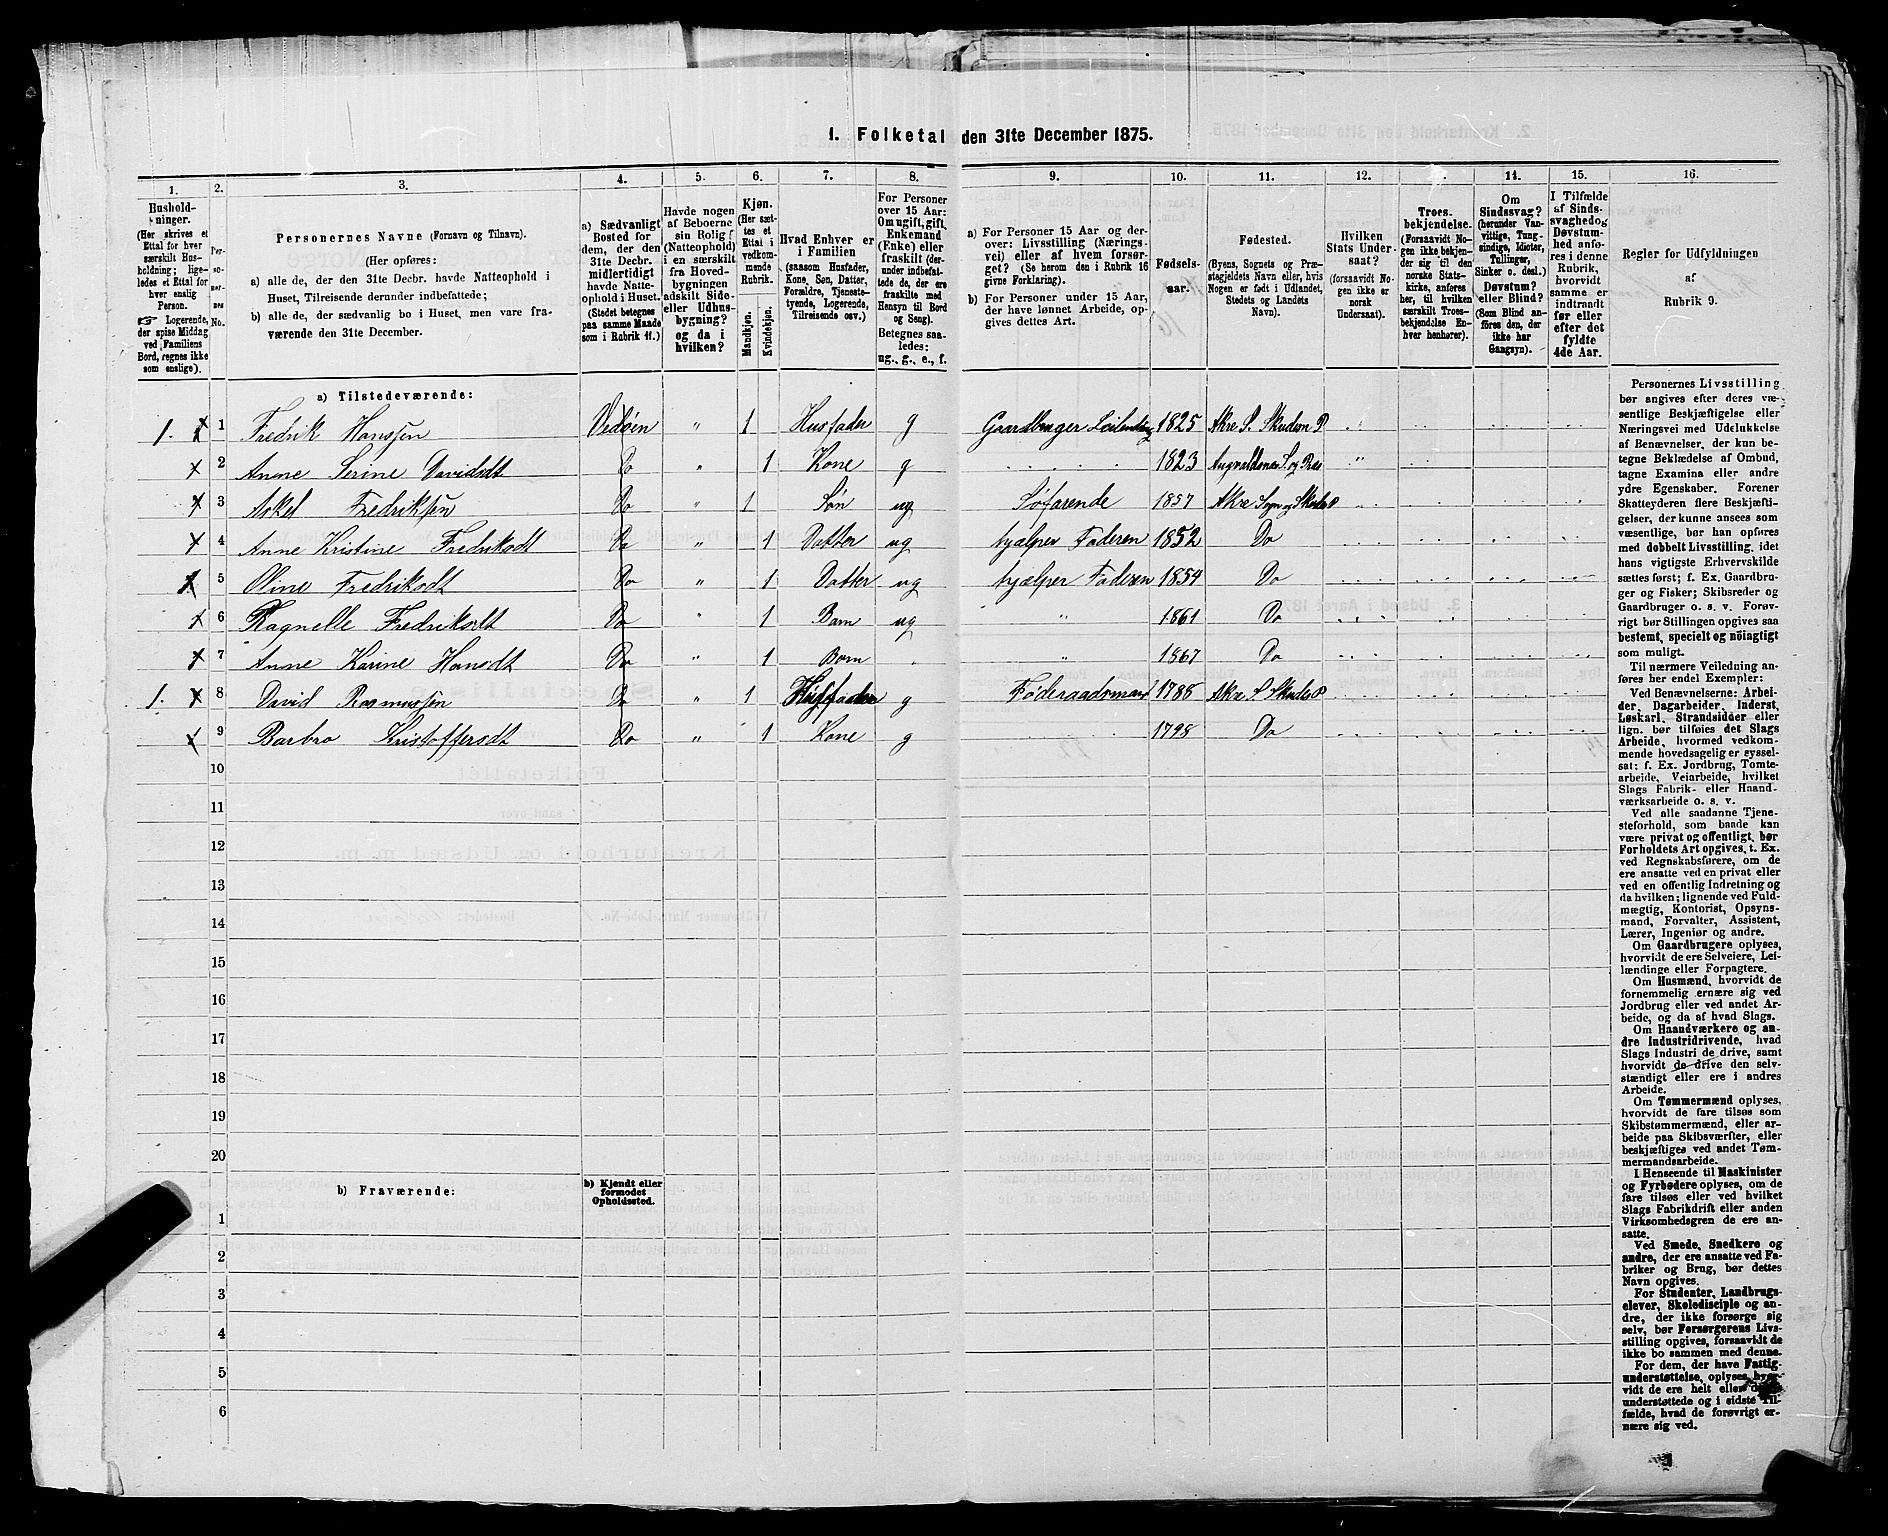 1. Folketal den 31te December 1875.
1.
2.
3.
4.
5.
6.
7.
8.
9.
10.
11.
12.
14.
15.
16.
Hushold-
ninger.
(Her skrives et
Ettal for hver
særskilt Hus-
holdning; lige-
ledes et Ettal for
hver enslig
Person.
☞ Logerende,
der spise Middag
ved Familiens
Bord, regnes ikke
som enslige).
Per-
so-
ner-
nes
No.
Personernes Navne (Fornavn og Tilnavn).
(Her opføres:
a) alle de, der den 31te Decbr. havde Natteophold i
Huset, Tilreisende derunder indbefattede;
b) alle de, der sædvanlig bo i Huset, men vare fra-
værende den 31te December.
a) Sædvanligt
Bosted for
dem, der den
31te Decbr.
midlertidigt
havde Natte-
ophold i Huset.
(Stedet betegnes
paa samme Maade
som i Rubrik 11.)
Havde nogen
af Beboerne
sin Bolig
(Natteophold)
i en særskilt
fra Hoved-
bygningen
adskilt Side-
eller Udhus-
bygning?
og da i
hvilken?
Kjøn.
(Her sæt-
tes et
Ettal i
vedkom-
mende
Rubrik.
Mandkjøn.
Kvindekjøn.
Hvad Enhver er
i Familien
(saasom Husfader,
Kone, Søn, Datter,
Forældre, Tjeneste-
tyende, Logerende,
Tilreisende osv.)
For Personer
over 15 Aar:
Om ugift, gift,
Enkemand
(Enke) eller
fraskilt (der-
under indbefat-
tede de, der ere
fraskilte med
Hensyn til Bord
og Seng).
Betegnes saa-
ledes:
ug., g., e., f.
a) For Personer 15 Aar og der-
over: Livsstilling (Nærings-
vei) eller af hvem forsør-
get? (Se herom den i Rubrik 16
givne Forklaring).
b) For Personer under 15 Aar,
der have lønnet Arbeide, op-
gives dettes Art.
Fødsels-
aar.
Fødested.
(Byens, Sognets og Præ-
stegjeldets Navn eller, hvis
Nogen er født i Udlandet,
Stedets og Landets
Navn).
Hvilken
Stats Under-
saat?
(forsaavidt No-
gen ikke er
norsk
Undersaat).
Troes-
bekjendelse.
(Forsaavidt No-
gen ikke bekjen-
der sig til den
norske Stats-
kirke, anføres
her, til hvilken
særskilt Troes-
bekjendelse En-
hver henhører).
Om
Sindssvag?
(herunder Van-
vittige, Tung-
sindige, Idioter,
Tullinger,
Sinker o. desl.)
Døvstum?
eller Blind?
(Som Blind an-
føres den, der
ikke har
Gangsyn).
I Tilfælde
af Sinds-
svaghed og
Døvstum-
hed anfø-
res i denne
Rubrik,
hvorvidt
samme er
indtraadt
før eller
efter det
fyldte
4de Aar.
Regler for Udfyldningen
af
Rubrik 9.
a) Tilstedeværende:
1. 1 Fredrik Hanssen Vedøen " 1 Husfader g Gaardbruger Leilending 1825 Akre S. Skuden P
2 Anne Serine Davidsdt Do " 1 Kone g 1823 Augvaldsnes S. og Præs "
3 Askel Fredriksen Do " 1 Søn ug Søfarende 1857 Akre Sogn og Skudes P
4 Anne Kristine Fredriksdt Do " 1 Datter ug hjælper Faderen 1852 Do
5 Oline Fredriksdt Do " 1 Datter ug hjælper Faderen 1854 Do
6 Ragnelle Fredriksdt Do " 1 Barn ug " 1861 Do
7 Anne Karine Hansdt Do " 1 Barn " " 1867 Do
1. 8 David Rasmussen Do " 1 Husfader g Føderaadsmand 1788 Akre S Skudes P
9 Barbro Kristoffersdt Do " 1 Kone g 1798 Do
10
11
12
13
14
15
16
17
18
19
20
b) Fraværende:
b) Kjendt eller
formodet
Opholdssted.
1
2
3
4
5
6
Personernes Livsstilling
bør angives efter deres væ-
sentlige Beskjæftigelse eller
Næringsvei med Udelukkelse
af Benævnelser, der kun be-
tegne Beklædelse af Ombud,
tagne Examina eller andre
ydre Egenskaber. Forener
Skatteyderen flere Beskjæfti-
gelser, der kunne ansees som
væsentlige, bør han opføres
med dobbelt Livsstilling, idet
hans vigtigste Erhvervskilde
sættes først; f. Ex. Gaardbru-
ger og Fisker; Skibsreder og
Gaardbruger o. s. v. Forøv-
rigt bør Stillingen opgives saa
bestemt, specielt og nöiagtigt
som muligt.
Til nærmere Veiledning an-
føres her endel Exempler:
Ved Benævnelserne: Arbei-
der, Dagarbeider, Inderst,
Løskarl, Strandsidder eller
lign. bør tilføies det Slags
Arbeide, hvormed vedkom-
mende hovedsagelig er syssel-
sat; f. Ex. Jordbrug, Tomte-
arbeide, Veiarbeide, hvilket
Slags Fabrik- eller Haand-
værksarbeide o. s. v.
Ved alle saadanne Tjene-
steforhold, som baade kan
være privat og offentligt, bør
Forholdets Art opgives, t. Ex.
ved Regnskabsførere, om de
ere ansatte ved en privat eller
ved en offentlig Indretning og
da hvilken; lignende ved Fuld-
mægtig, Kontorist, Opsyns-
mand, Forvalter, Assistent,
Lærer, Ingeniør og andre.
Om Gaardbrugere oplyses,
hvorvidt de ere Selveiere, Lei-
lændinge eller Forpagtere.
Om Husmænd, hvorvidt de
fornemmelig ernære sig ved
Jordbrug eller ved andet Ar-
beide, og da af hvad Slags.
Om Haandværkere og an-
dre Industridrivende, hvad
Slags Industri de drive, samt
hvorvidt de drive den selv-
stændigt eller ere i andres
Arbeide.
Om Tømmermænd oplyses,
hvorvidt de fare tilsøs som
Skibstømmermænd, eller ar-
beide paa Skibsværfter, eller
beskjæftiges ved andet Tøm-
mermandsarbeide.
I Henseende til Maskinister
og Fyrbødere oplyses, om de
fare tilsøs eller ved hvilket
Slags Fabrikdrift eller anden
Virksomhedsgren de ere an-
satte.
Ved Smede, Snedkere og
andre, der ere ansatte ved Fa-
briker og Brug, bør dettes
Navn opgives.
For Studenter, Landbrugs-
elever, Skoledisciple og an-
dre, der ikke forsørge sig
selv, bør Forsørgerens Livs-
stilling opgives, forsaavidt de
ikke bo sammen med denne.
For dem, der have Fattig-
understøttelse, oplyses, hvor-
vidt de ere helt eller delvis
understøttede og i sidste Til-
fælde, hvad de forøvrigt er-
nære sig ved.